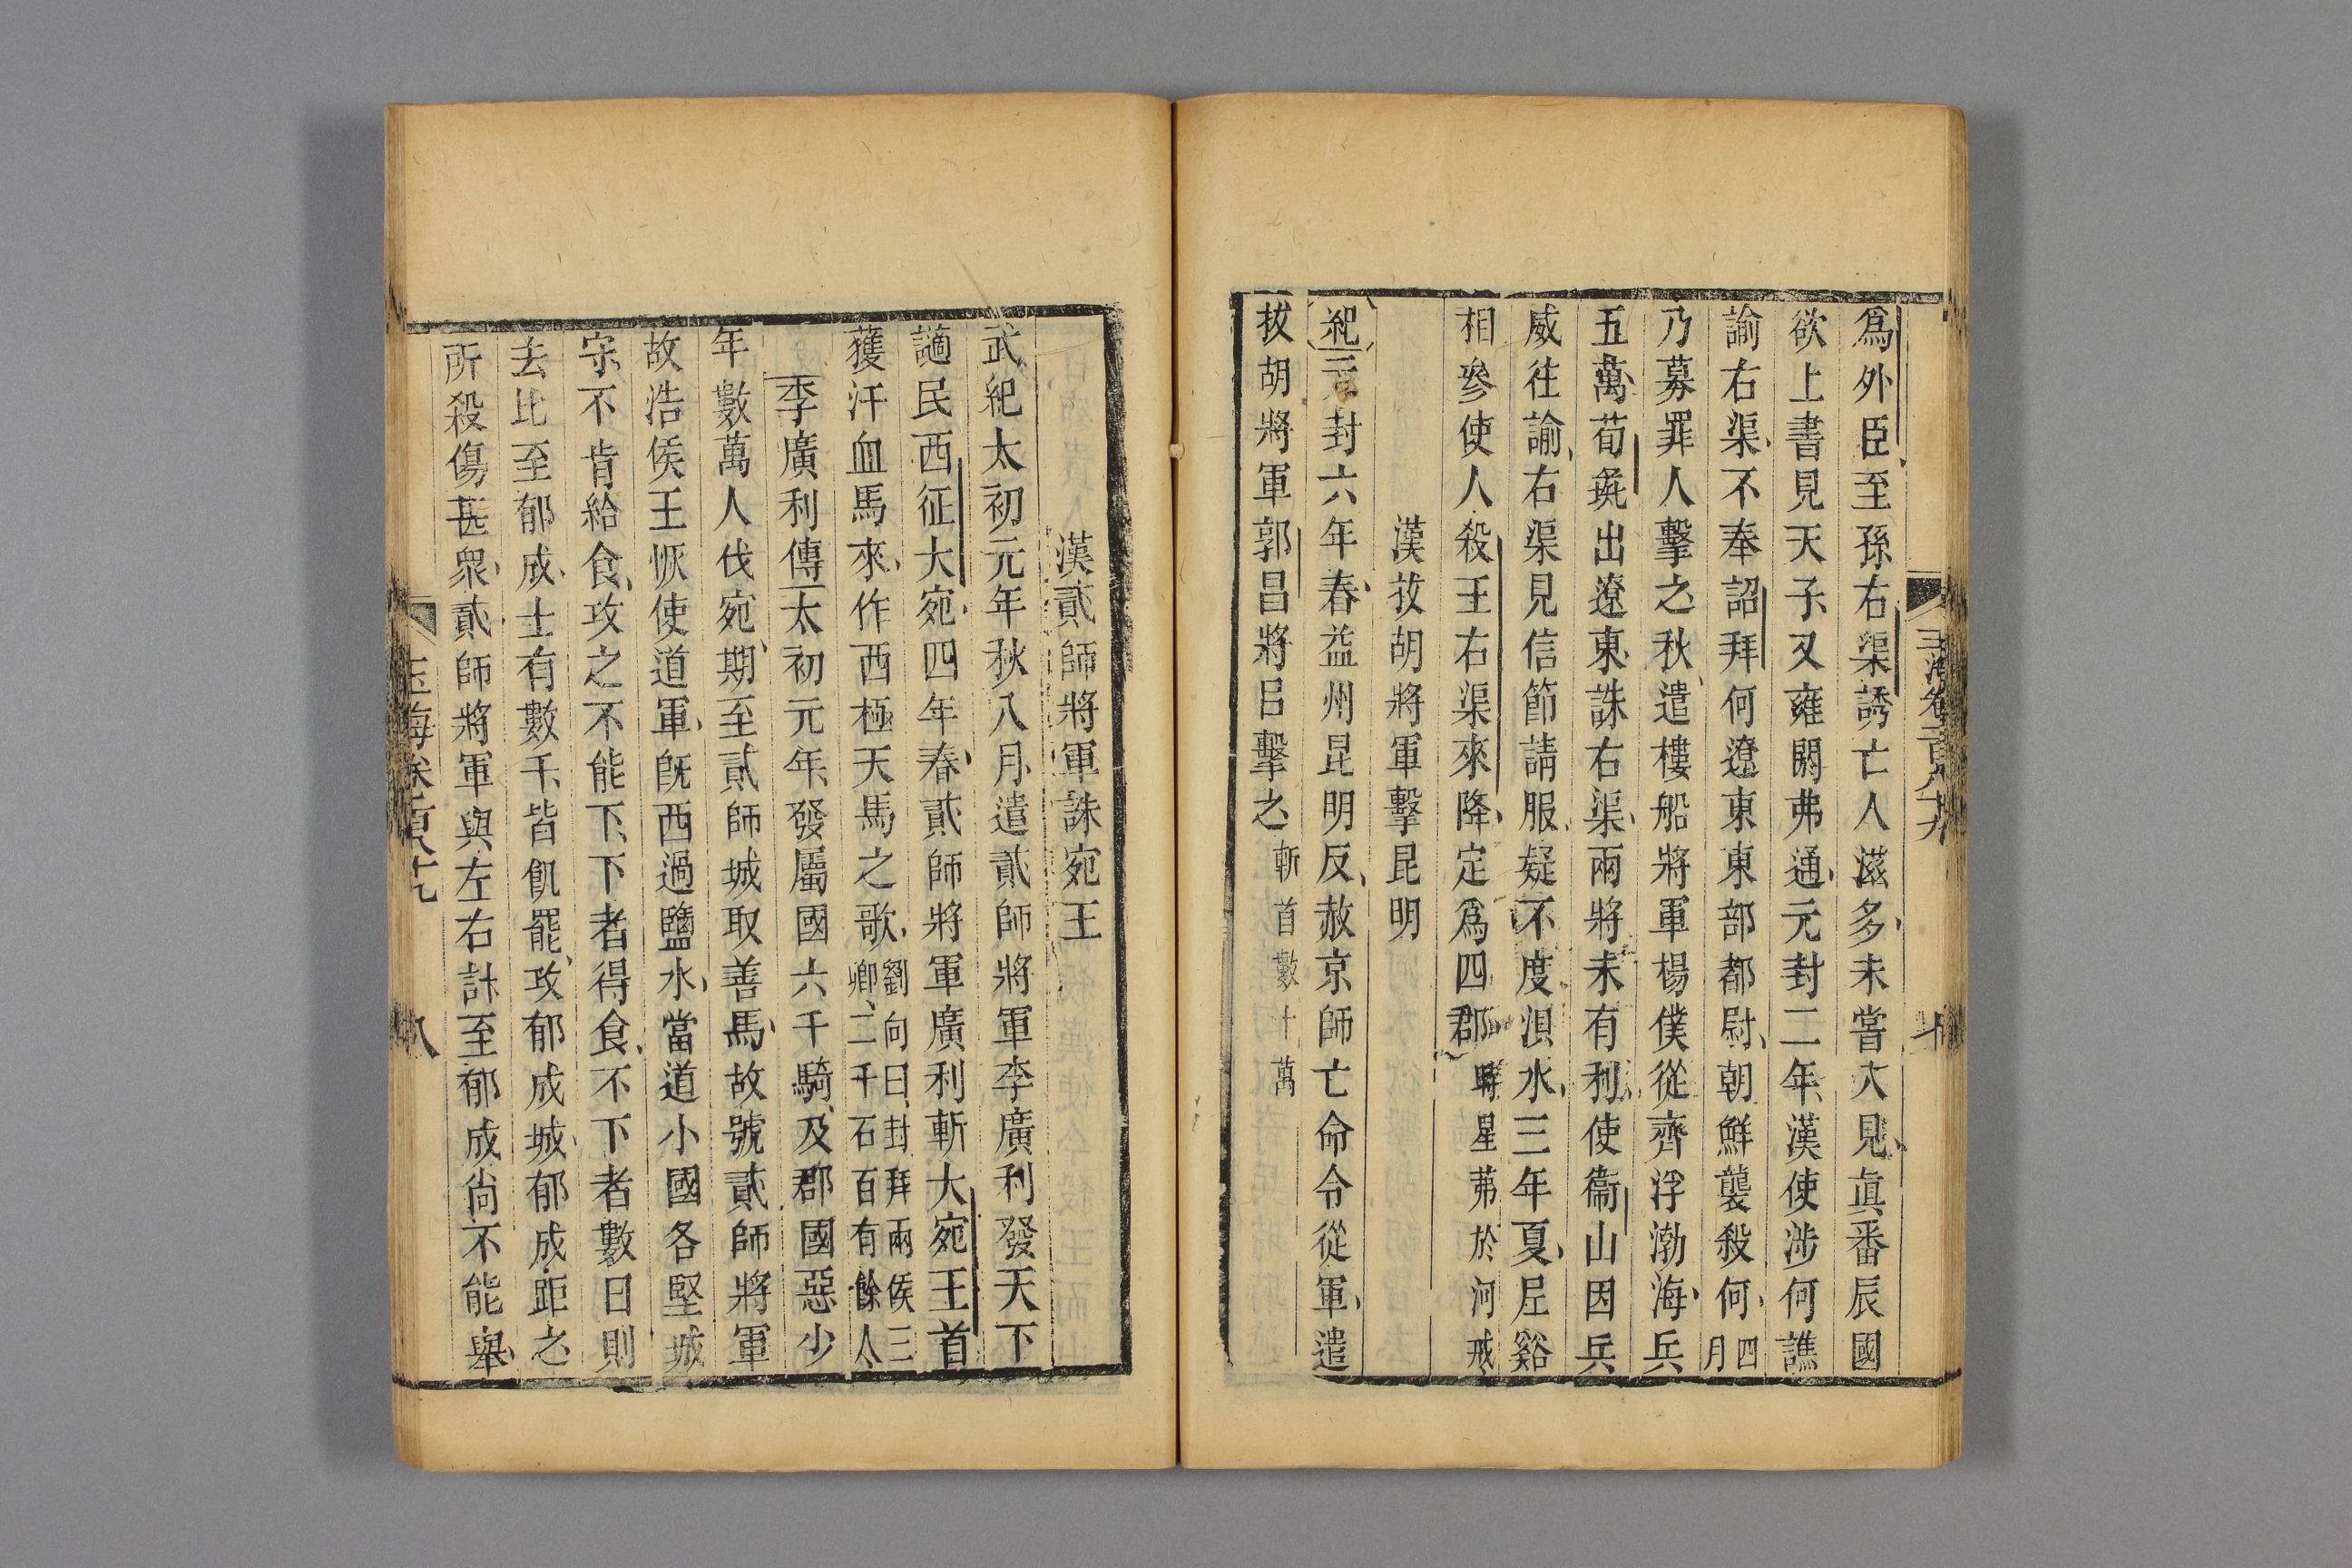 爲外臣至孫右渠誘亡人滋多未嘗入見眞番辰國
欲上書見天子又雍閼弗通元封二年漢使涉何譙
諭右渠不奉詔拜何遼東東部都尉朝鮮襲殺何四月
乃募罪人擊之秋遣樓船將軍楊僕從齊浮渤海兵
五萬荀彘出遼東誅右渠兩將未有利使衞山因兵
威往諭右渠見信節請服疑不度浿水三年夏尼谿
相參使人殺王右渠來降定爲四郡時星茀於河戒
漢拔胡將軍擊昆明
紀元封六年春益州昆明反赦京師亡命令從軍遣
拔胡將軍郭昌將㠯擊之斬首數十萬
漢貳師將軍誅宛王
武紀太初元年秋八月遣貳師將軍李廣利發天下
讁民西征大宛四年春貳師將軍廣利斬大宛王首
獲汗血馬來作西極天馬之歌劉向曰封拜兩侯三卿二千石百有餘人
李廣利傳太初元年發屬國六千騎及郡國惡少
年數萬人伐宛期至貳師城取善馬故號貳師將軍
故浩侯王恢使道軍旣西過鹽水當道小國各堅城
守不肯給食攻之不能下下者得食不下者數日則
去比至郁成士有數千皆飢罷攻郁成城郁成距之
所殺傷甚衆貳師將軍與左右計至郁成尙不能舉
玉海卷百八十九
八